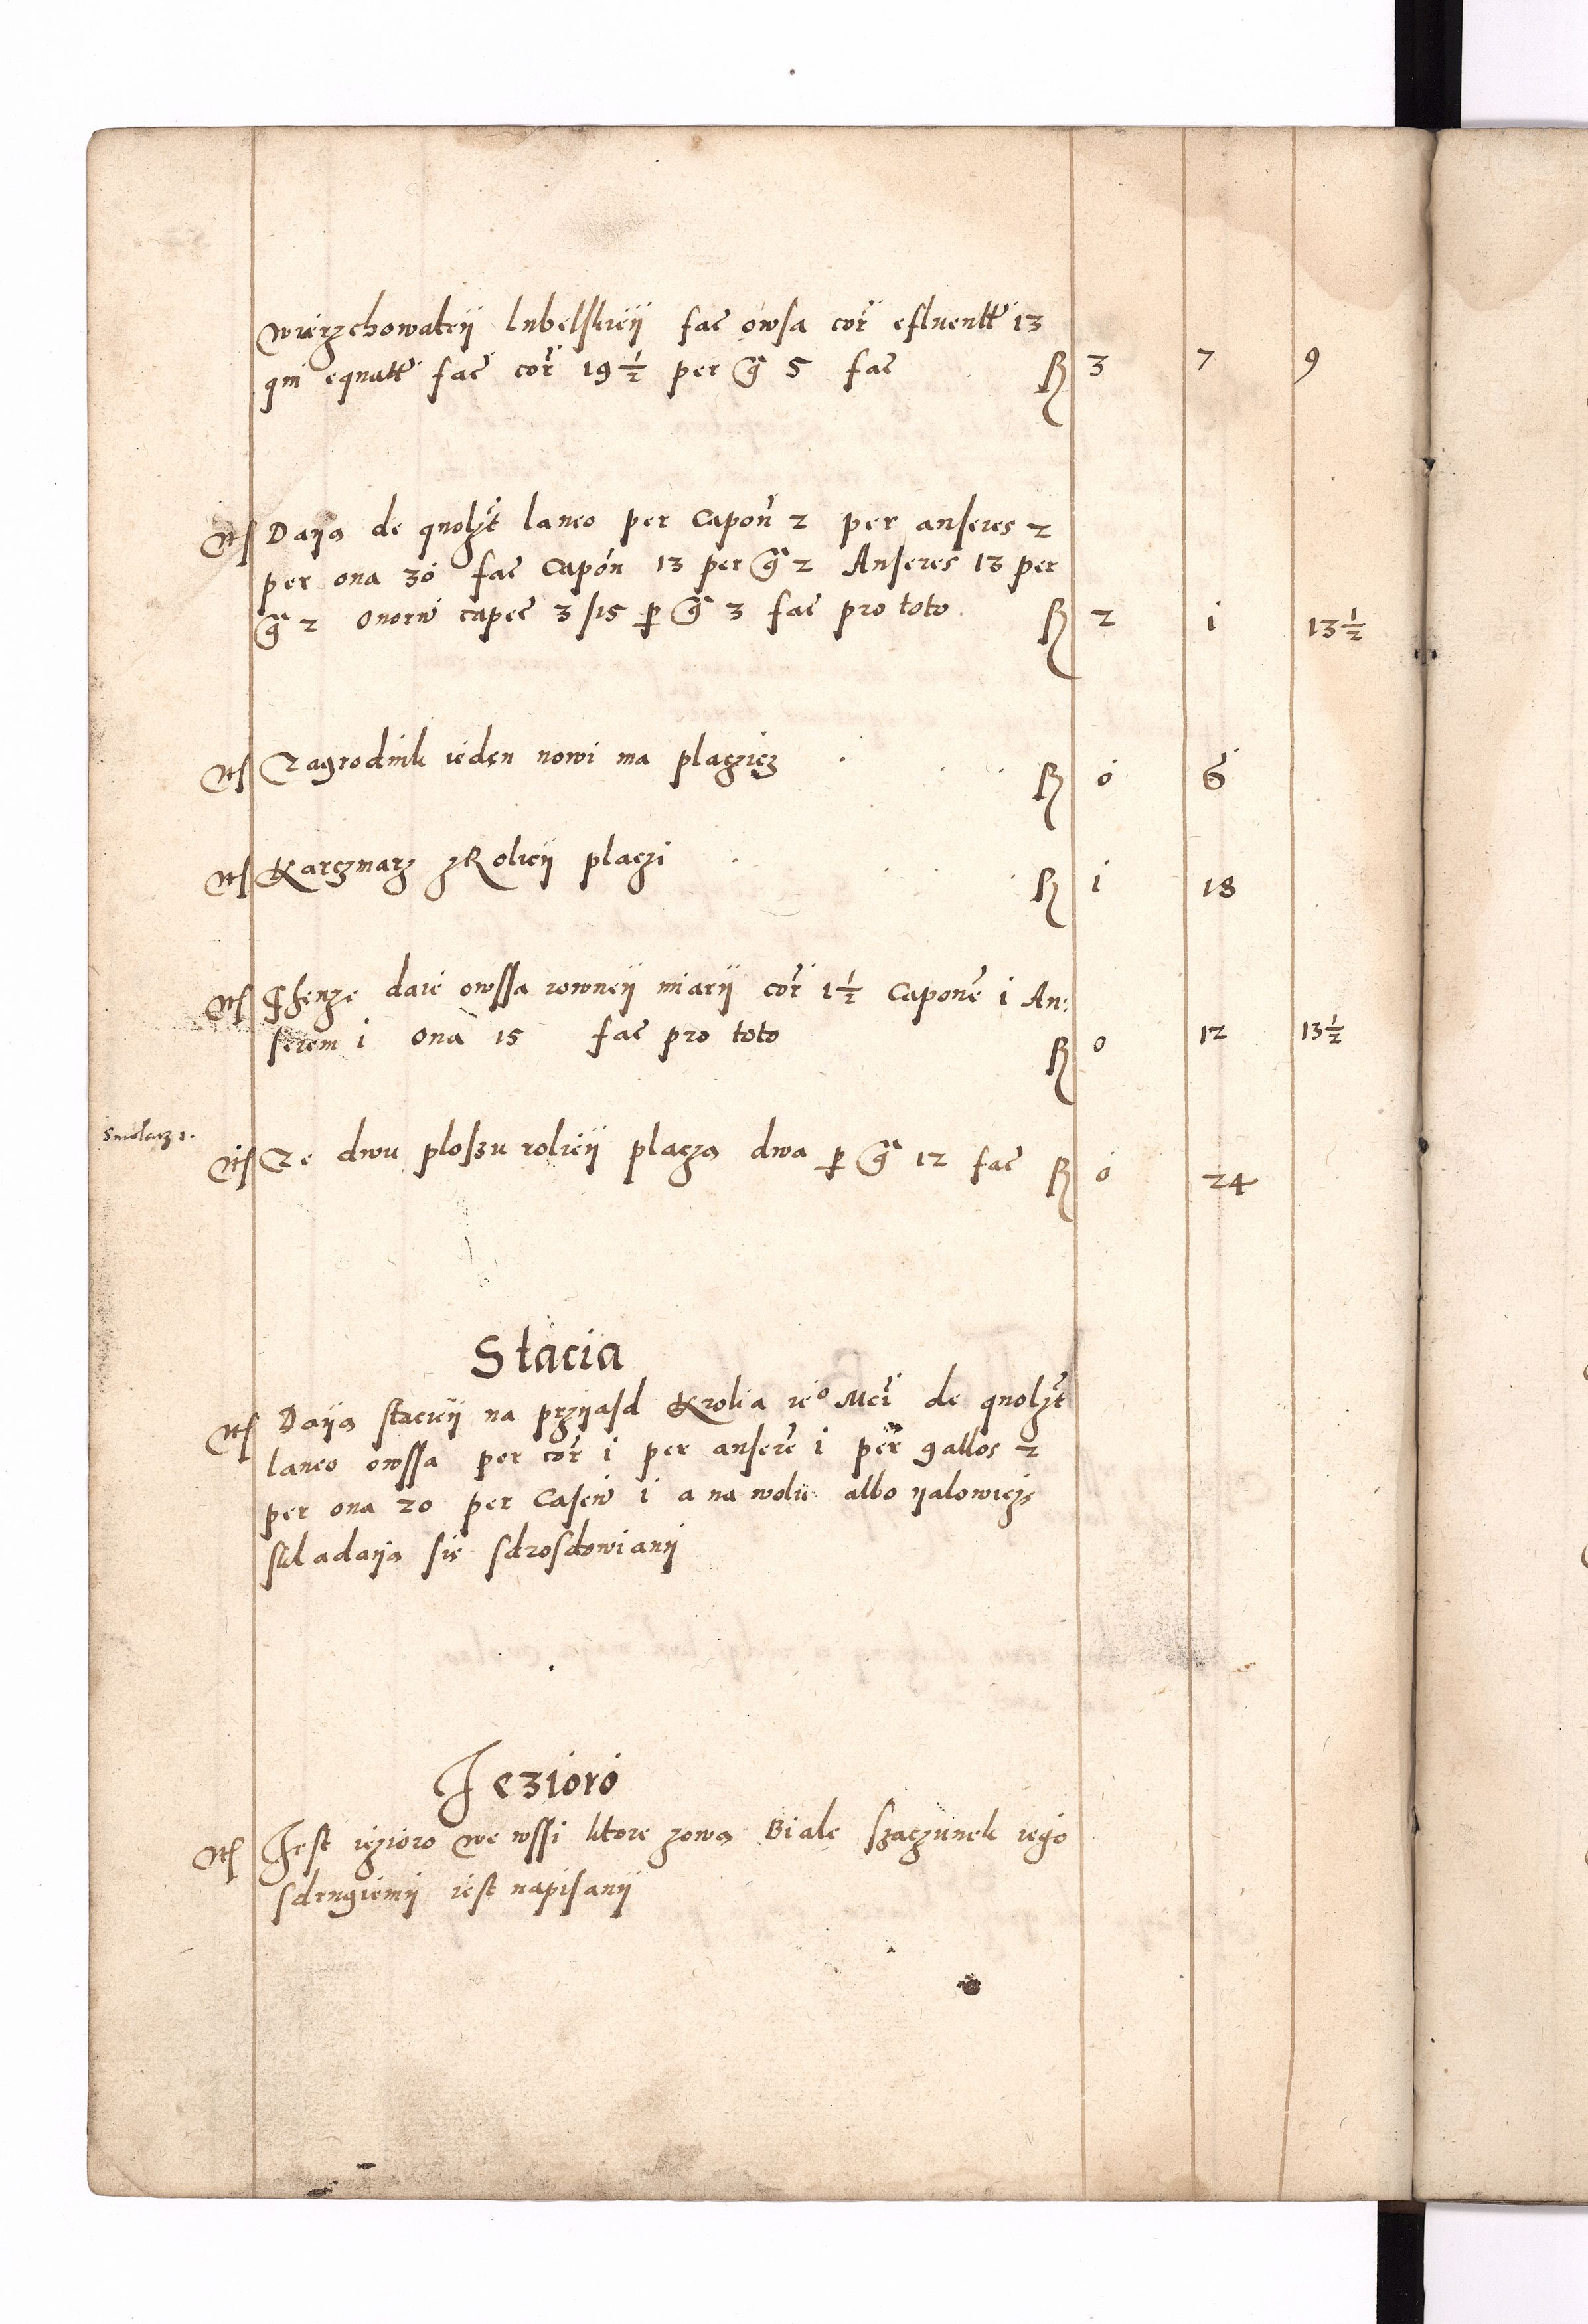 wierzchowateÿ lubelskieÿ fač owsa coř efluentt 13
qui equatt fač coř 19 1/2 per gr̃ 5 fač ℟ 3 7 9
Itͫ Daÿą de quolzt laneo per Capoñ 2 per anseres 2
per oua 30 fač Capon 13 per gr̃ 2 Anseres 13 per
gr̃ 2 Ouorũ capeč 3/15 p gr̃ 3 fač pro toto ℟ 2 i 13 1/2
Itͫ Zagrodnik ieden nowi ma placzicz ℟ 0 6
Itͫ Karczmarz z Rolieÿ placzi ℟ i 18
Itͫ daie owssa rowneÿ miarÿ coř 1 1/2 Caponẽ i An:
serem i oua 15 fač pro toto ℟ 0 12 13 1/2
Smolarz 2.
Itͫ Ze dwu ploszu rolieÿ placzą dwa p gr̃ 12 fač ℟ 0 24
Stacia
Itͫ Daÿą stacieÿ na przÿasd Krolia ieº Mči de quolzt
laneo owssa per coř i per anserẽ i per gallos 2
per oua 20 per Caseũ i a na wolu albo ÿalowicze
skladaÿą sie sdrosdowianÿ
Jezioro
Itͫ Jest iezioro we wssi ktore zową Biale szaczunek iego
sdrugiemÿ iest napisanÿ